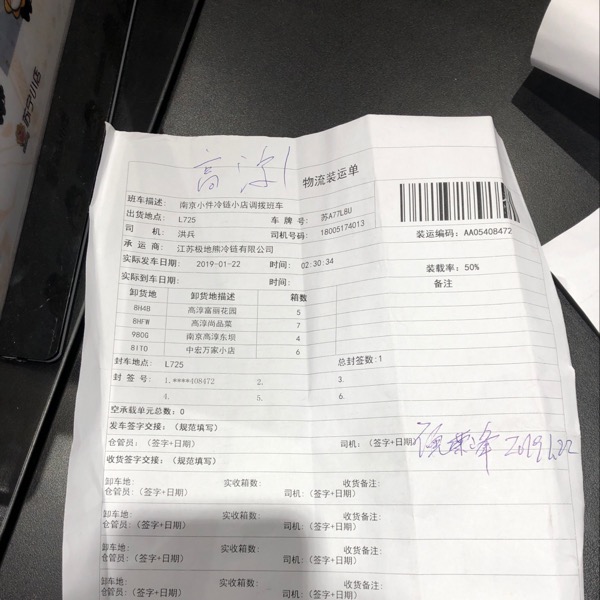 苏宁小店
高淳1
物流装运单
班车描述: 南京小件冷链小店调拨班车
出货地点: L725 车 牌 号: 苏A77L8U
司 机: 洪兵 18005174013 装运编码: AA05408472
承 运 商: 江苏极地熊冷链有限公司
实际发车日期: 2019-01-22 时间: 02:30:34 装载率: 50%
实际到车日期: 时间: 备注
卸货地 卸货地描述 箱数
8H4B 高淳富丽花园 5
8HFW 高淳尚品菜 7
980G 南京高淳东坝 4
8IT0 中宏万家小店 6
封车地点: L725 总封签数:1
封 签 号: 1.****408472 2. 3.
4. 5. 6.
空承载单元总数: 0
发车签字交接: (规范填写)
仓管员: (签字+日期) 司机: (签字+日期) 2019.1.22
收货签字交接: (规范填写)
卸车地: 实收箱数: 收货备注:
仓管员: (签字+日期) 司机: (签字+日期)
卸车地: 实收箱数: 收货备注:
仓管员: (签字+日期) 司机: (签字+日期)
卸车地: 实收箱数: 收货备注:
仓管员: (签字+日期) 司机: (签字+日期)
卸车地: 实收箱数: 收货备注:
仓管员: (签字+日期) 司机: (签字+日期)